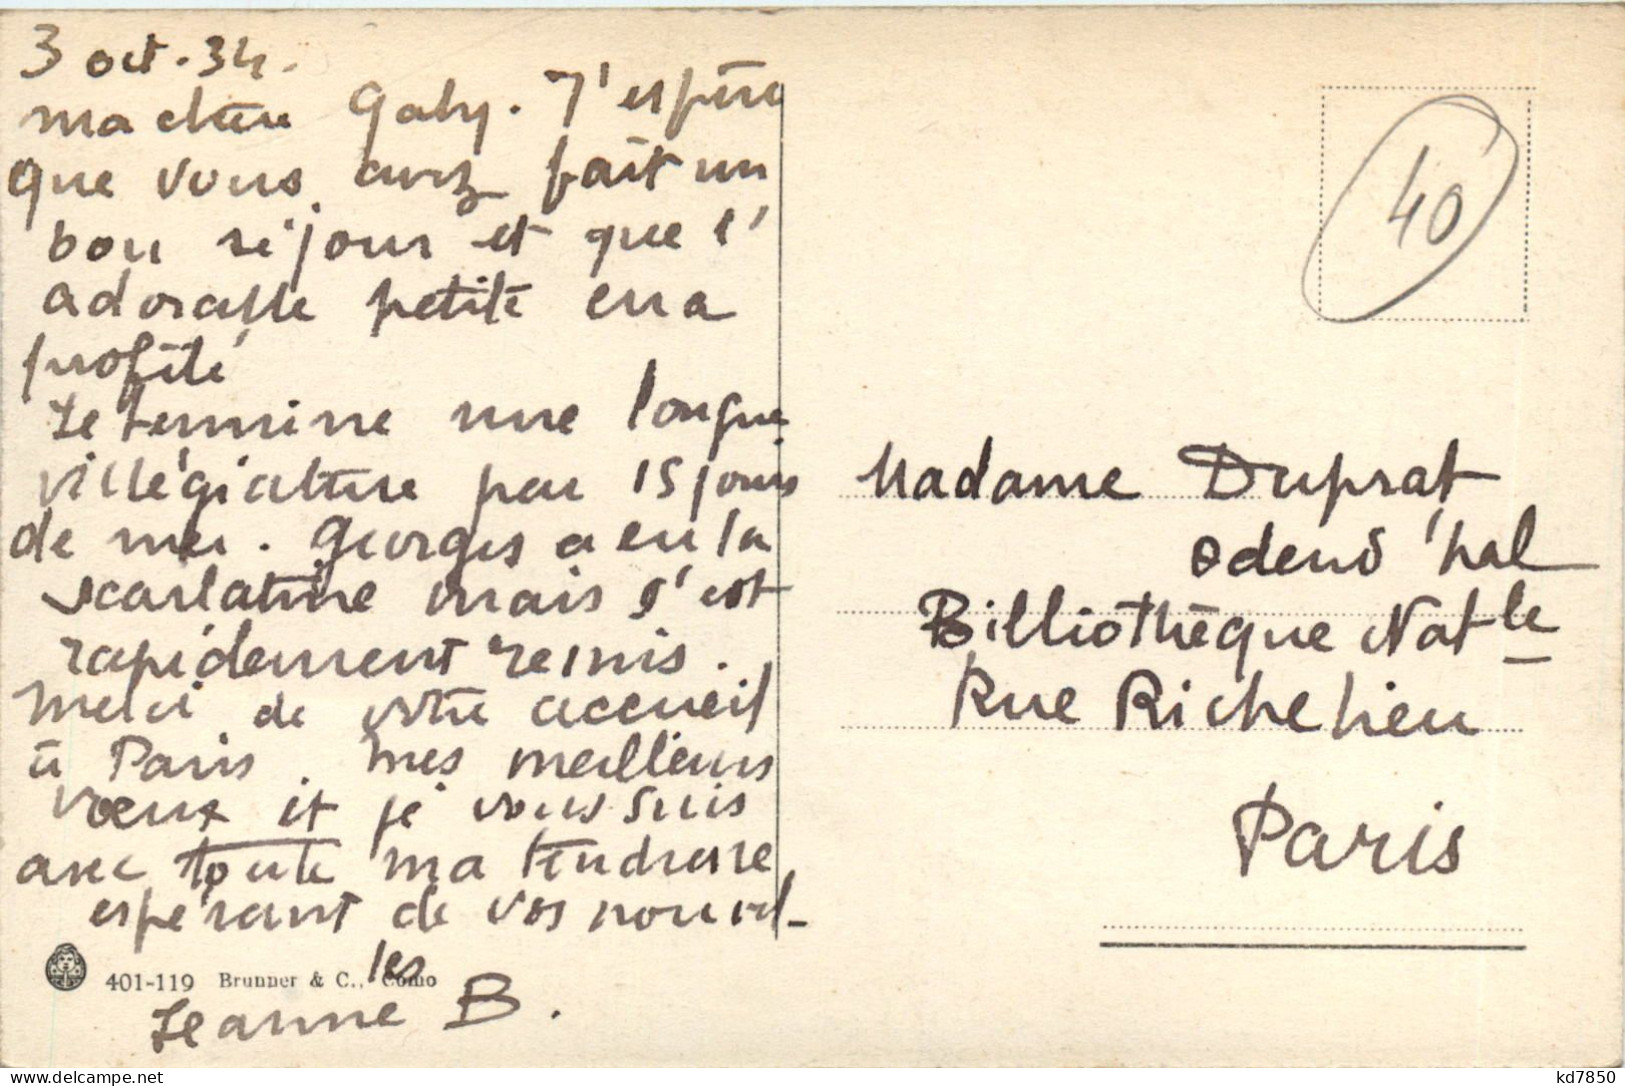 3 oct. 34.
ma chère Gaby. J'espère
que vous avez fait un
bon séjour et que l'
adorable petite en a
profité
Je termine une longue
villégiature par 15 jours
de mer. Georges a eu la
scarlatine mais s'est
rapidement remis.
Merci de votre accueil
à Paris. Mes meilleurs
vœux et je vous suis
avec toute ma tendresse
espérant de vos nouvel-
les
Jeanne B.
401-119 Brunner & C., Como
40
Madame Duprat
Bibliothèque Natle
Rue Richelieu
Paris
kd7850